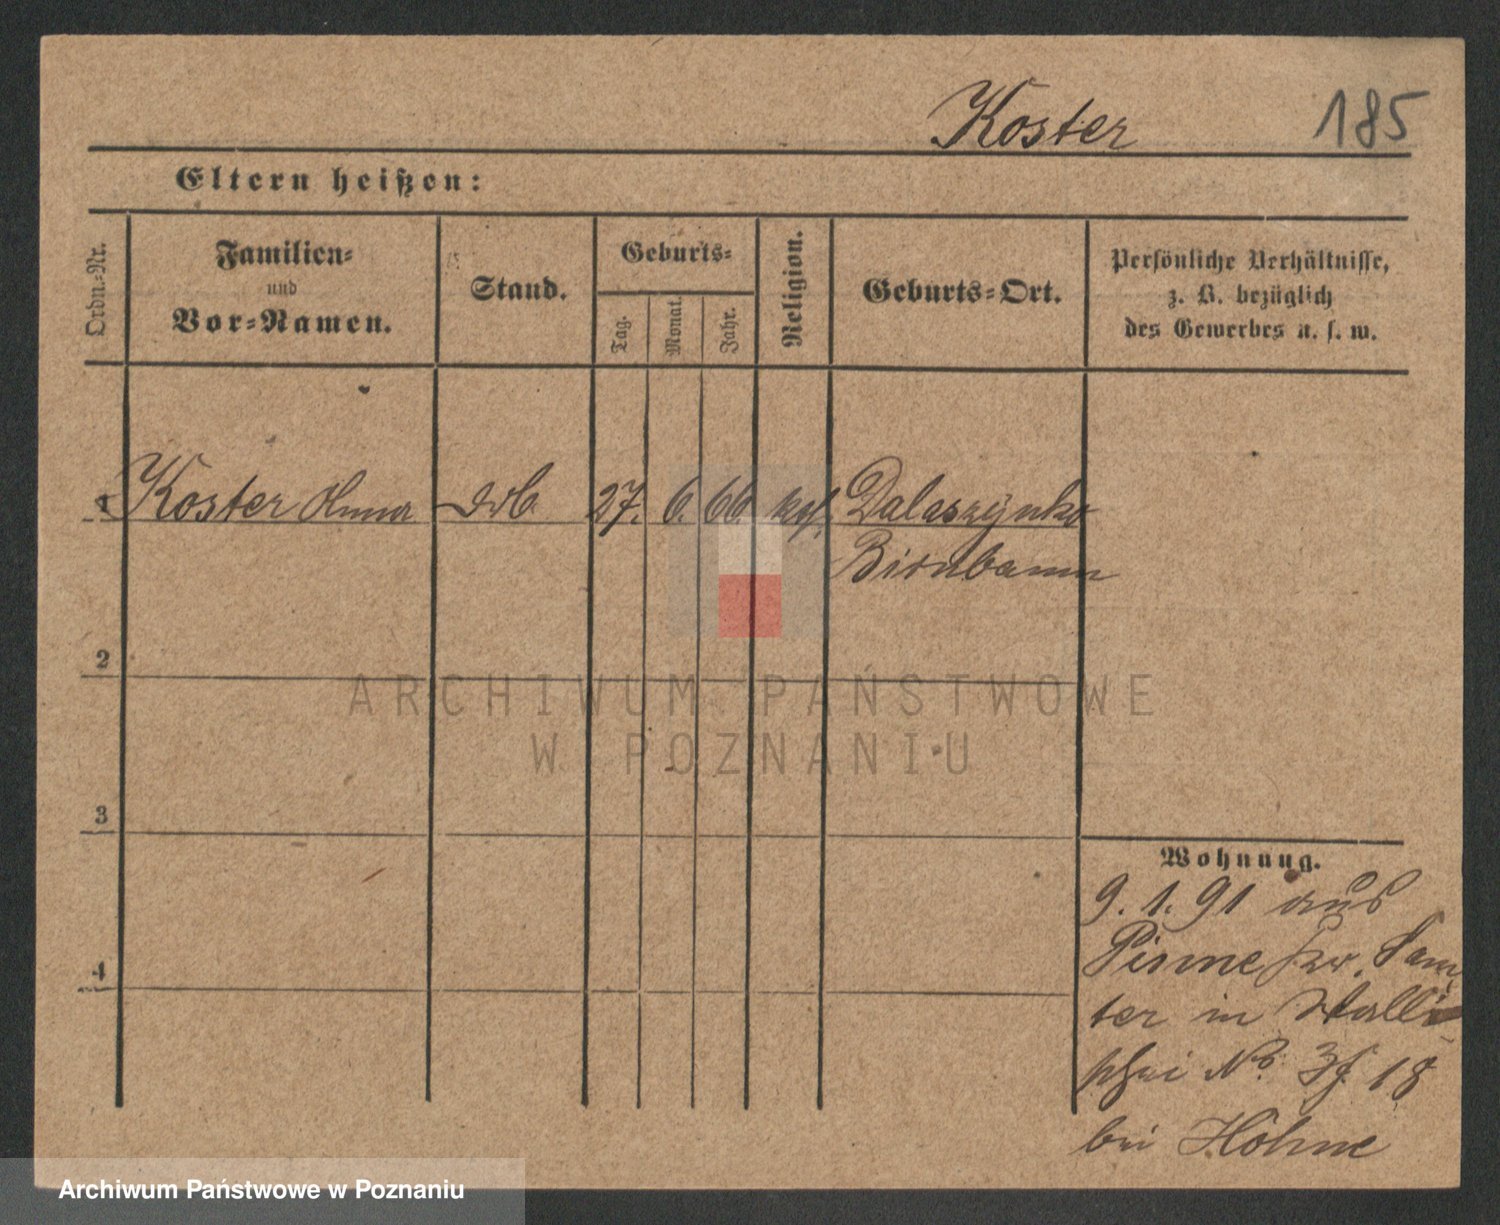 Koster 185
Eltern heißen:
Ordn.-Nr.
Familien-
und
Vor-Namen.
Stand.
Geburts-
Tag.
Monat.
Jahr.
Religion.
Geburts-Ort.
Persönliche Verhältnisse,
z. B. bezüglich
des Gewerbes u. s. w.
1 Koster Anna 27. 6. 66. Dalaszynko
Birnbaum
2
3
4
Wohnung.
9. 1. 91 aus
Pinne Sam
ter in
No. 18
bei Höhne
ARCHIWUM PAŃSTWOWE
W POZNANIU
Archiwum Państwowe w Poznaniu